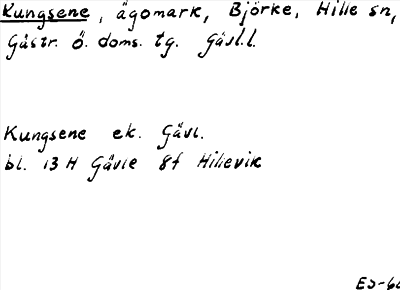 Kungsene, ägomark, Björke, Hille sn,
Gästr. ö. doms. tg. Gävl.l.
Kungsene ek. Gävl.
bl. 13 H Gävle 8f Hillevik